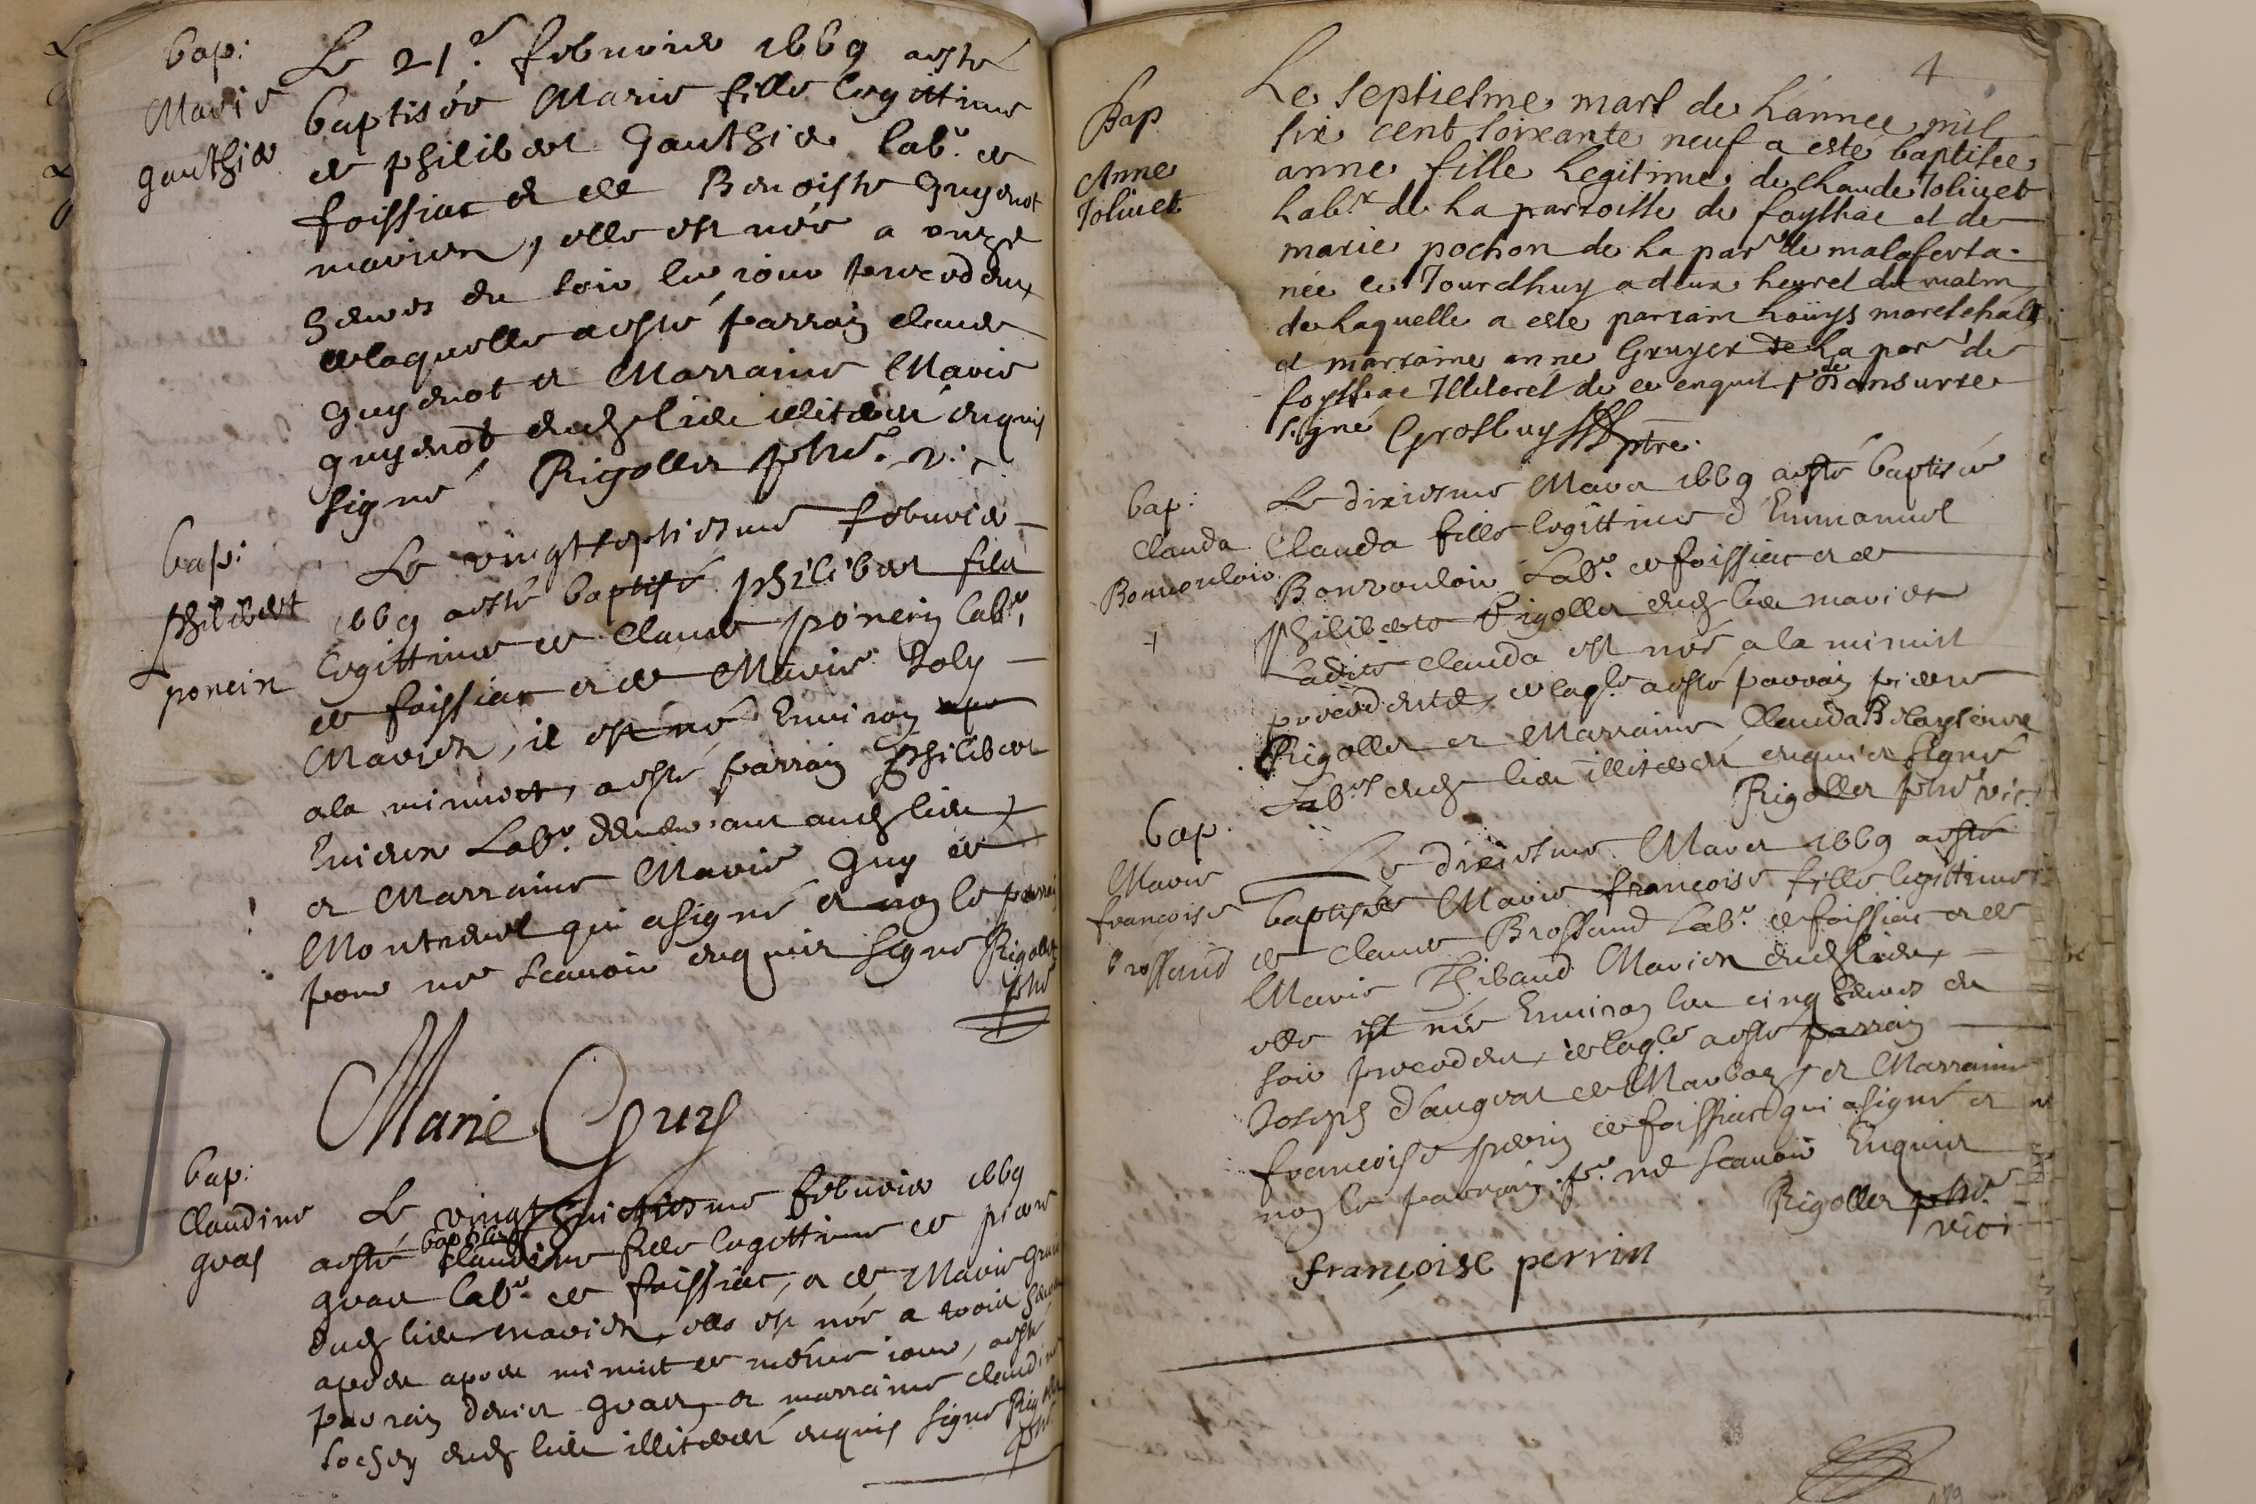 bap:
Marie
gauthier
Le 21e. febuvrier 1669 a esté
baptisée Marie fille legittime
de philibert Gauthier labr. de
foissiac et de Benoiste Guyenot
mariez, elle est née a onze
heures du soir le iour precedent
de laquelle a esté parrain claude
guyenot et Marraine Marie
guyenot dudt lieu illiterés enquis
signé Rigollet pbre. vic.
bap:
philibert
poncin
Le vingtseptiesme febuvrier
1669 a esté baptisé philibert filz
legittime de Claude poncin labr.
de foissiac et de Marie Joly
Mariez, il est né Environ
a la minuict, a esté parrain philibert
Labr. demeurant audt lieu,
et Marraine Marie Guy de
Montrevel qui a signé et non le parrain
pour ne scauoir enquis signé Rigollet
pbre
Marie Guy
bap:
Claudine
gras
Le vingt huictiesme febuvrier 1669
a esté baptisée Claudine fille legittime de pierre
gras labr. de foissiac, et de Marie
dudt lieu mariez, elle est née a trois heures
apres minuit de mesme iour, a esté
parrain denis gras, et marraine claudine
sochay dudt lieu illiterés enquis signé Rigollet
pbre
4
Bap
Anne
Joliuet
Le septiesme mars de l'annee mil
six cent soixante neuf a esté baptisée
anne fille legitime de Claude Joliuet
labr. de la parroisse de foyssiac et de
marie pochon de la parr de malaferta.
née ce Jourdhuy a deux heures du matin
de laquelle a este parrain Loüys mareschal
et marraine anne Gruyer de la parr de
foyssiac Illiteres de ce enquis
signé Grosbuy ptre.
bap:
Clauda
Bonvouloir
+
Le dixiesme Mars 1669 a esté baptisée
Clauda fille legittime d'Emmanuel
Bonvouloir Labr. de foissiac et de
philiberte Rigollet dudt lieu mariez
Ladite Clauda est née a la minuit
precedente, de laqle. a esté parrain pierre
Rigollet et Marraine Clauda
Labrs dudt lieu illiterés enquis signé
Rigollet pbre vic.
bap.
Marie
francoise
Brossaud
Le dixiesme Mars 1669 a esté
baptisée Marie francoise fille legittime
de Claude Brossaud Labr. de foissiac et de
Marie Thibaud Mariez dudt lieu,
elle est née Environ les cinq heures du
soir precedent, de laqle. a esté parrain
Joseph d'angerat de Marboz, et Marraine
francoise perrin de foissiac, qui a signé et
non le parrain pr. ne scauoir Enquis
Rigollet pbre.
vic.
françoise perrin